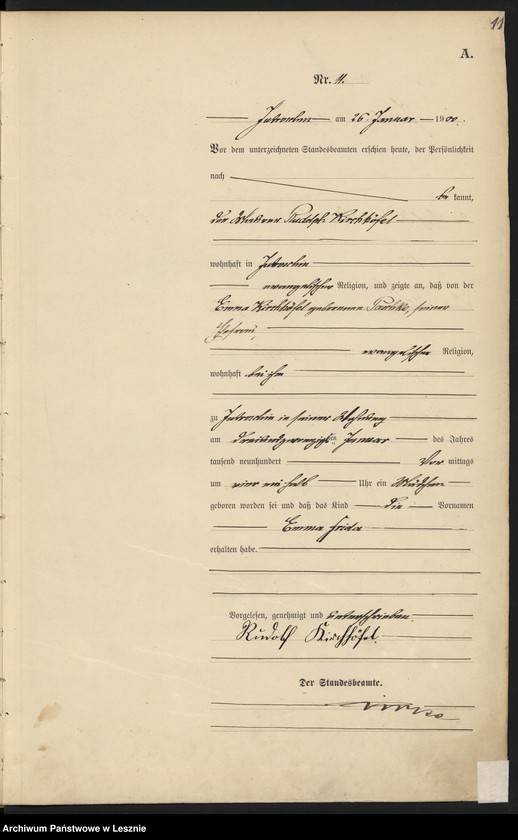 11
A.
Nr. 11.
Jutroschin am 26. Januar 1900.
Vor dem unterzeichneten Standesbeamten erschien heute, der Persönlichkeit
nach
be kannt,
der Rudolph Kirchhöfel
wohnhaft in Jutroschin
evangelischer Religion, und zeigte an, daß von der
Emma Kirchhöfel geborenen seiner
Ehefrau,
evangelischer Religion,
wohnhaft bei ihm
zu Jutroschin in seiner Wohnung
am dreiundzwanzigsten Januar des Jahres
tausend neunhundert Vor mittags
um vier ein halb Uhr ein Mädchen
geboren worden sei und daß das Kind die Vornamen
Emma Frida
erhalten habe.
Vorgelesen, genehmigt und unterschrieben.
Rudolf Kirchhöfel.
Der Standesbeamte.
Archiwum Państwowe w Lesznie